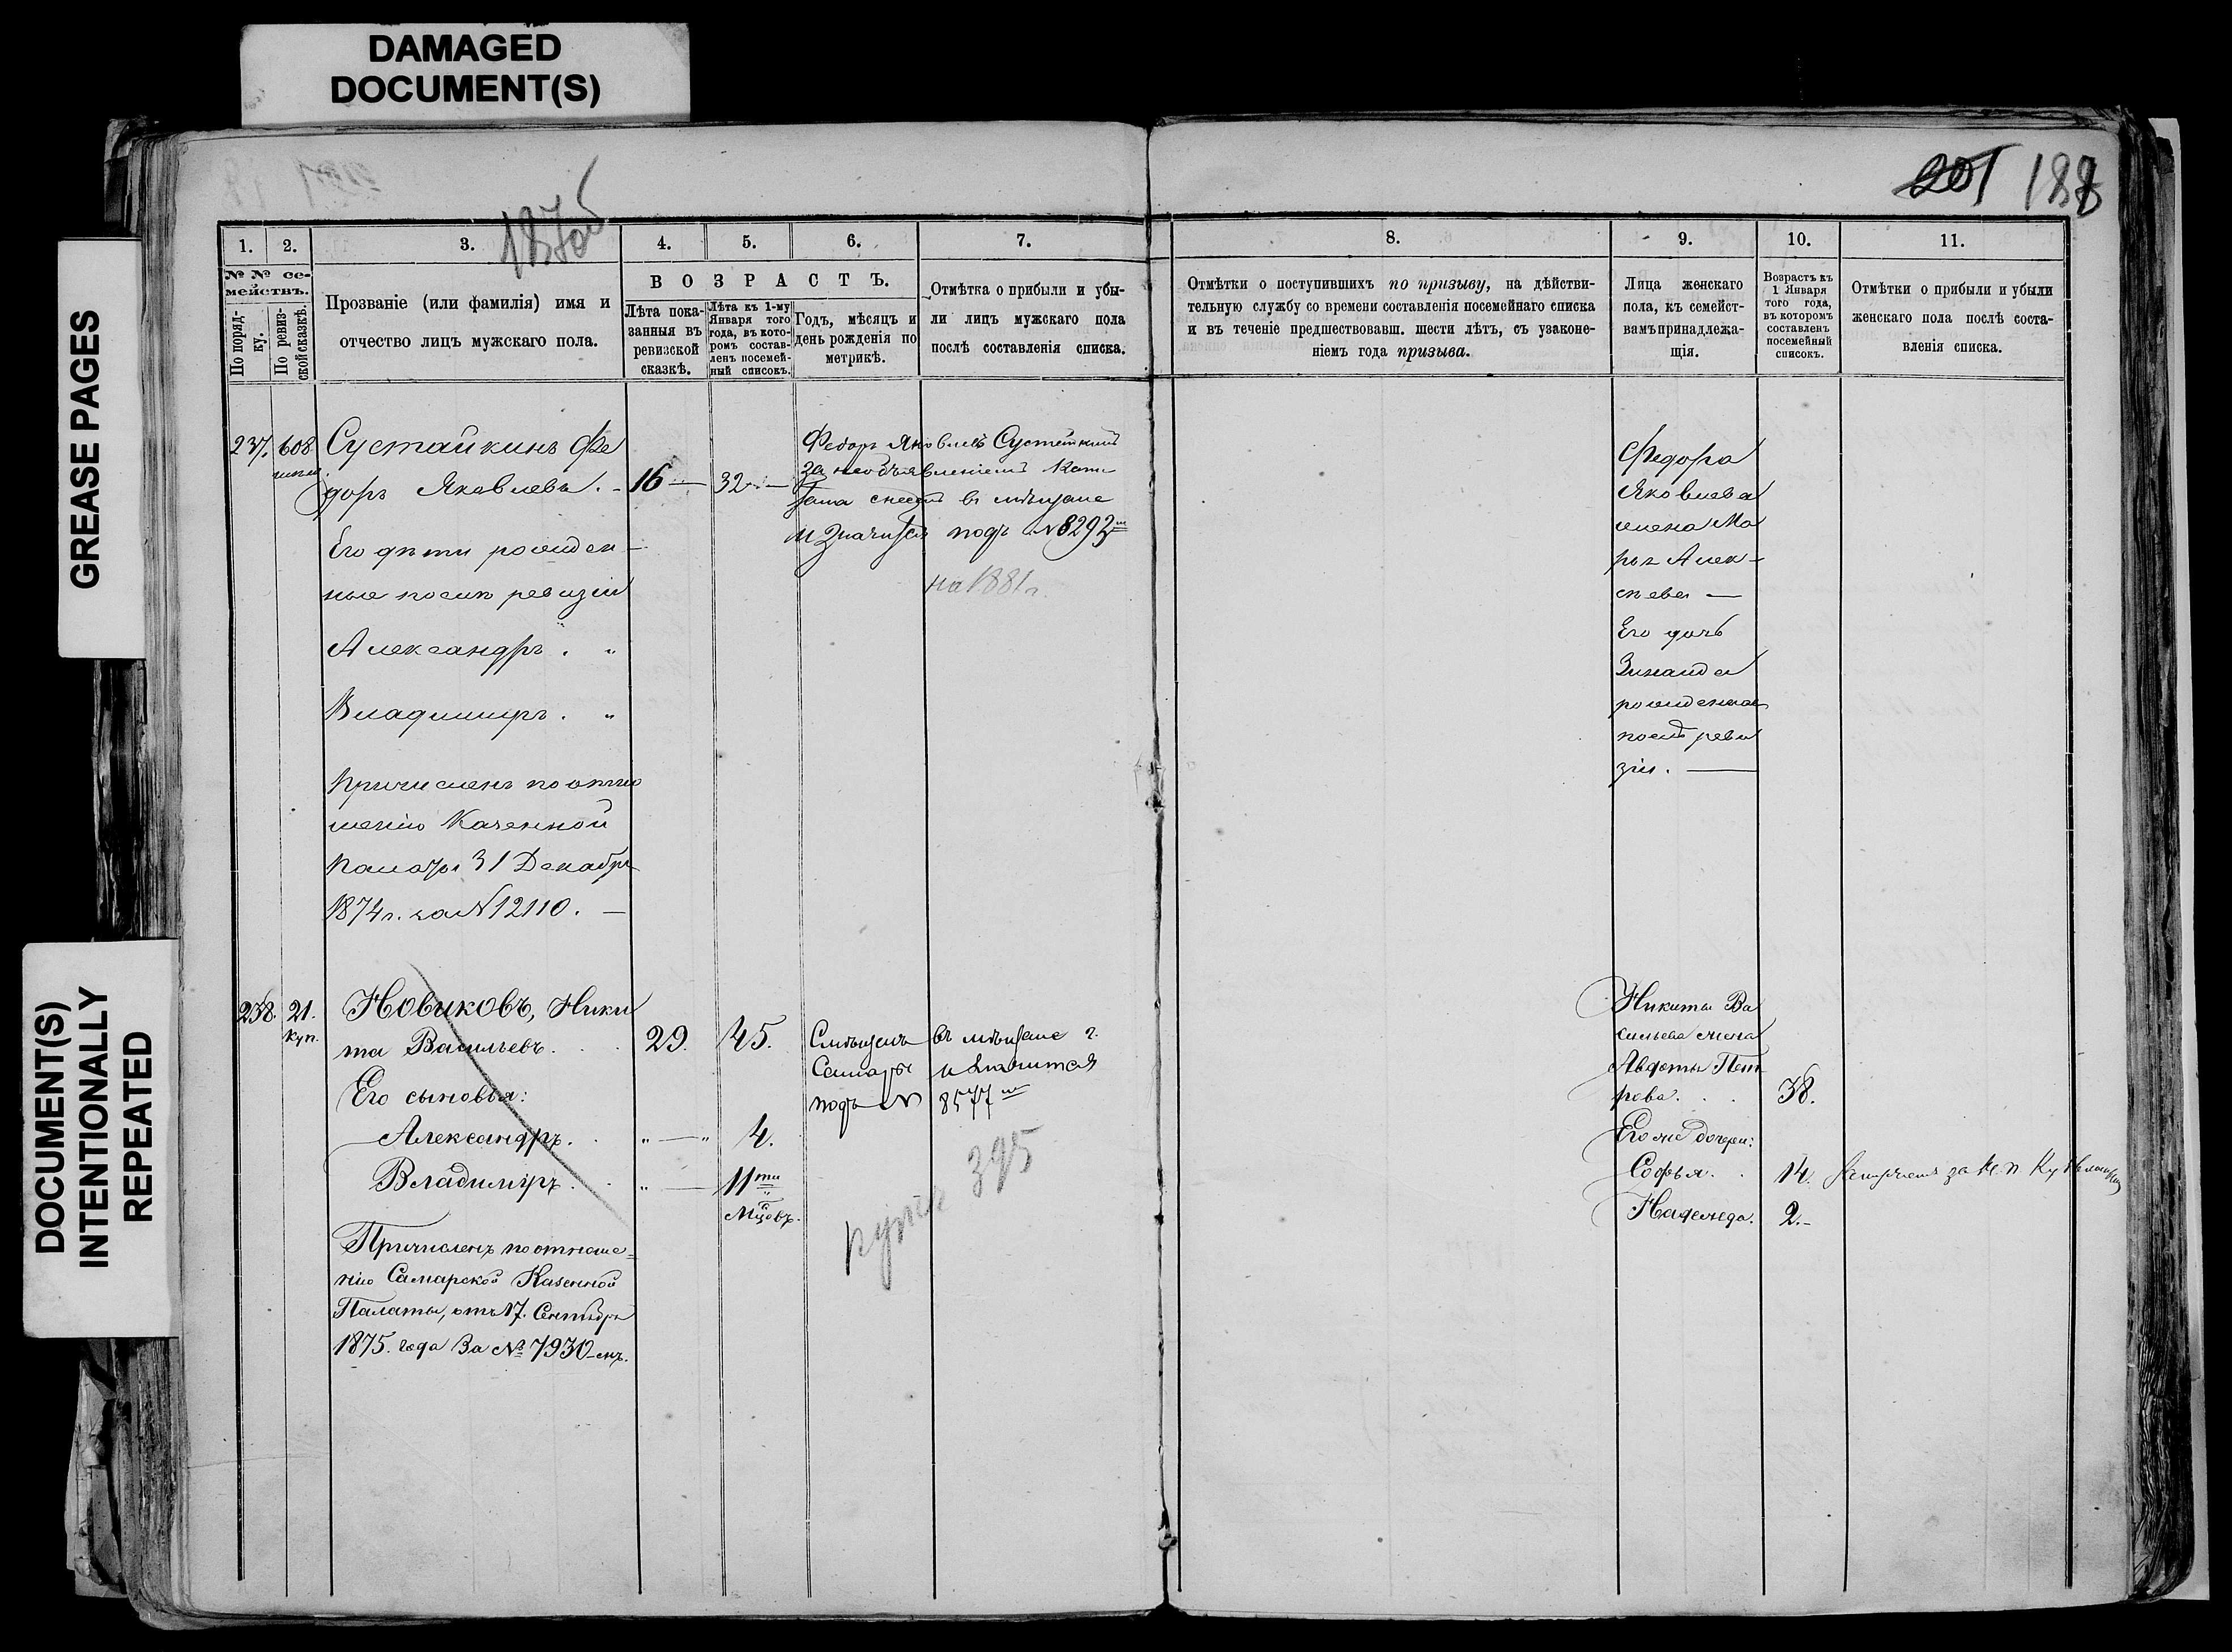 DAMAGED
DOCUMENT(S)
GREASE PAGES
DOCUMENT(S)
INTENTIONALLY
REPEATED
201 188
1875
1.
2.
3.
4.
5.
6.
7.
8.
9.
10.
11.
№ № се-
мействъ.
По поряд-
ку.
По ревиз-
ской сказкѣ.
Прозваніе (или фамилія) имя и
отчество лицъ мужскаго пола.
ВОЗРАСТЪ.
Лѣта пока-
занныя въ
ревизской
сказкѣ.
Лѣта къ 1-му
Января того
года, въ кото-
ромъ состав-
ленъ посемей-
ный списокъ.
Годъ, мѣсяцъ и
день рожденія по
метрикѣ.
Отмѣтка о прибыли и убы-
ли лицъ мужскаго пола
послѣ составленія списка.
Отмѣтки о поступившихъ по призыву, на дѣйстви-
тельную службу со времени составленія посемейнаго списка
и въ теченіе предшествовавш. шести лѣтъ, съ узаконе-
ніемъ года призыва.
Лица женскаго
пола, къ семейст-
вамъ принадлежа-
щія.
Возрастъ къ
1 Января
того года,
въ которомъ
составленъ
посемейный
списокъ.
Отмѣтки о прибыли и убыли
женскаго пола послѣ соста-
вленія списка.
237. 608
Сустайкинъ Фе
доръ Яковлевъ. - 16 — 32 —
Его дѣти рожден-
ные послѣ ревизіи
Александръ. "
Владимиръ. "
Причисленъ по отно
шенію Казенной
Палаты 31 Декабря
1874 г. за № 12110. —
Федоръ Яковлевъ
за необъявленіемъ Капи
тала въ мѣщане
и значится подъ № 8293
на 1881 г.
Федора
Яковлева
жена Ма
рья Алек-
сѣева —
Его дочь
Зинаида
рожденная
послѣ реви
зіи. —
238. 21. куп.
Новиковъ, Ники
та Васильевъ. . . 29. 45.
Его сыновья:
Александръ. . " — " 4.
Владиміръ. . " — 11ти
Мцовъ.
Причисленъ по отноше-
нію Самарской Казенной
Палаты, отъ 17. Сентября
1875. года За № 7930-мъ.
въ мѣщане г.
Самары и значится
подъ № 8577
395
Никиты Ва
сильева жена
Авдотья Пет
рова. . . 38.
Его же дочери:
Софья. . 14.
Надежда. 2.-